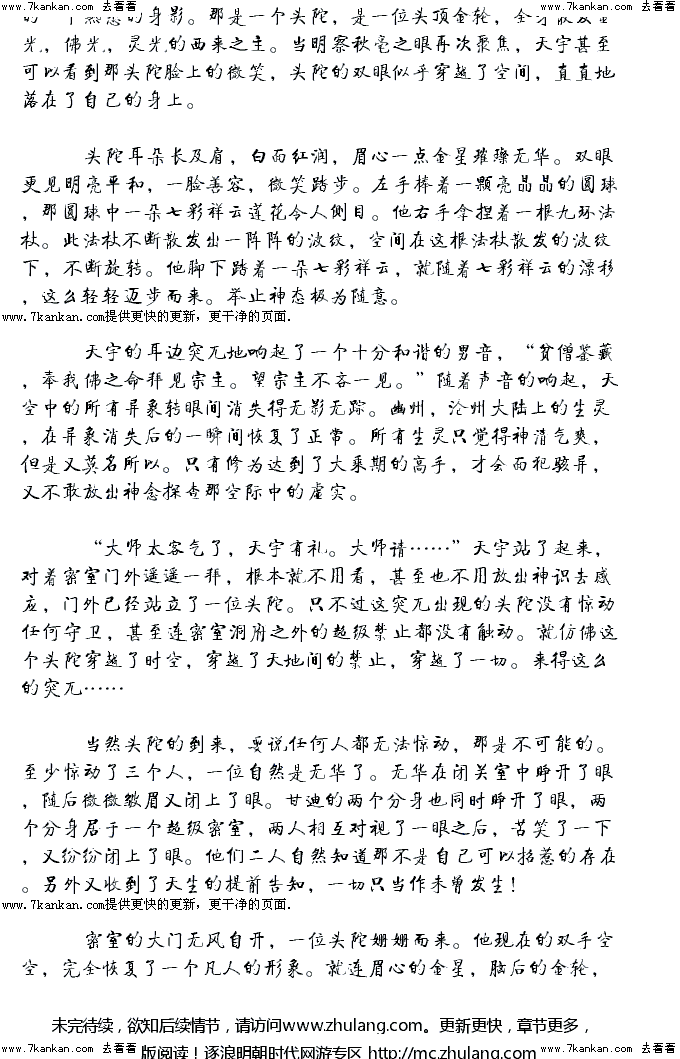 www.7kankan.com 去看看 www.7kankan.com 去看看 www.7kankan.com 去看看
光，佛光，灵光的西来之主。当明察秋毫之眼再次聚焦，天宇甚至
可以看到那头陀脸上的微笑，头陀的双眼似乎穿越了空间，直直地
落在了自己的身上。
头陀耳朵长及肩，白面红润，眉心一点金星璀璨无华。双眼
更见明亮平和，一脸善容，微笑踏步。左手棒着一颗亮晶晶的圆球
，那圆球中一朵七彩祥云莲花令人侧目。他右手拿捏着一根九环法
杖。此法杖不断散发出一阵阵的波纹，空间在这根法杖散发的波纹
下，不断旋转。他脚下踏着一朵七彩祥云，就随着七彩祥云的漂移
，这么轻轻迈步而来。举止神态极为随意。
www.7kankan.com提供更快的更新，更干净的页面.
天宇的耳边突兀地响起了一个十分和谐的男音，“贫僧鉴藏
，奉我佛之命拜见宗主。望宗主不吝一见。”随着声音的响起，天
空中的所有异象转眼间消失得无影无踪。幽州，沧州大陆上的生灵
，在异象消失后的一瞬间恢复了正常。所有生灵只觉得神清气爽，
但是又莫名所以。只有修为达到了大乘期的高手，才会面犯骇异，
又不敢放出神念探查那空际中的虚实。
“大师太客气了，天宇有礼。大师请……”天宇站了起来，
对着密室门外遥遥一拜，根本就不用看，甚至也不用放出神识去感
应，门外已经站立了一位头陀。只不过这突兀出现的头陀没有惊动
任何守卫，甚至连密室洞府之外的超级禁止都没有触动。就仿佛这
个头陀穿越了时空，穿越了天地间的禁止，穿越了一切。来得这么
的突兀……
当然头陀的到来，要说任何人都无法惊动，那是不可能的。
至少惊动了三个人，一位自然是无华了。无华在闭关室中睁开了眼
，随后微微皱眉又闭上了眼。甘迪的两个分身也同时睁开了眼，两
个分身居于一个超级密室，两人相互对视了一眼之后，苦笑了一下
，又纷纷闭上了眼。他们二人自然知道那不是自己可以招惹的存在
。另外又收到了天生的提前告知，一切只当作未曾发生！
www.7kankan.com提供更快的更新，更干净的页面.
密室的大门无风自开，一位头陀姗姗而来。他现在的双手空
空，完全恢复了一个凡人的形象。就连眉心的金星，脑后的金轮，
未完待续，欲知后续情节，请访问www.zhulang.com。更新更快，章节更多，
www.7kankan.com 去看看 版阅读！逐浪明朝时代网游专区 http://mc.zhulang.com 去看看